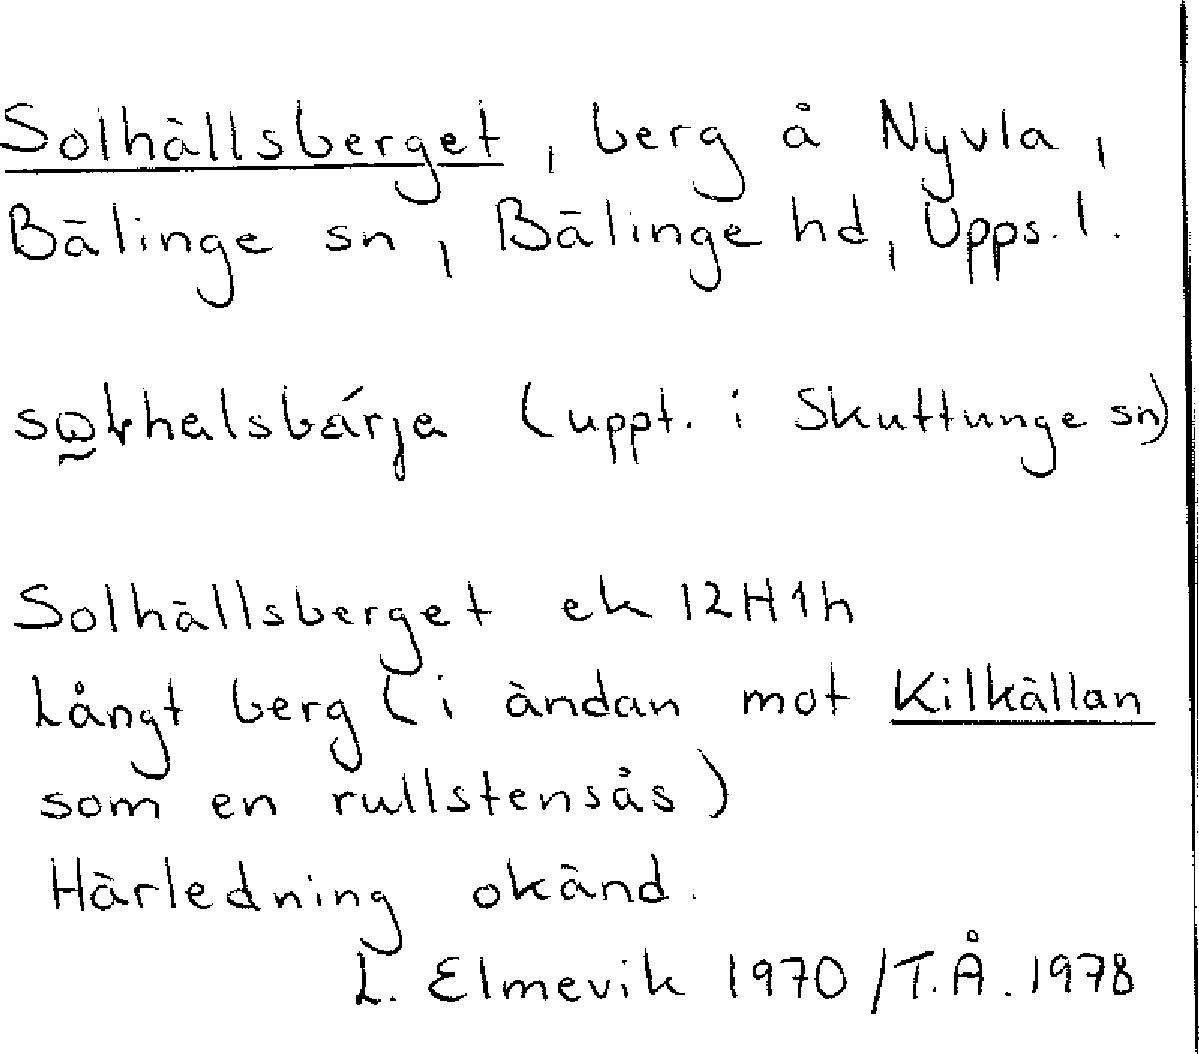 Solhällsberget, berg å Nyvla,
Bälinge sn, Bälinge hd, Upps. l.
(uppt. i Skuttunge sn)
Solhällsberget ek 12H1h
Långt berg (i ändan mot Kilkällan
som en rullstensås)
Härledning okänd.
L. Elmevik 1970 /T.Å. 1978